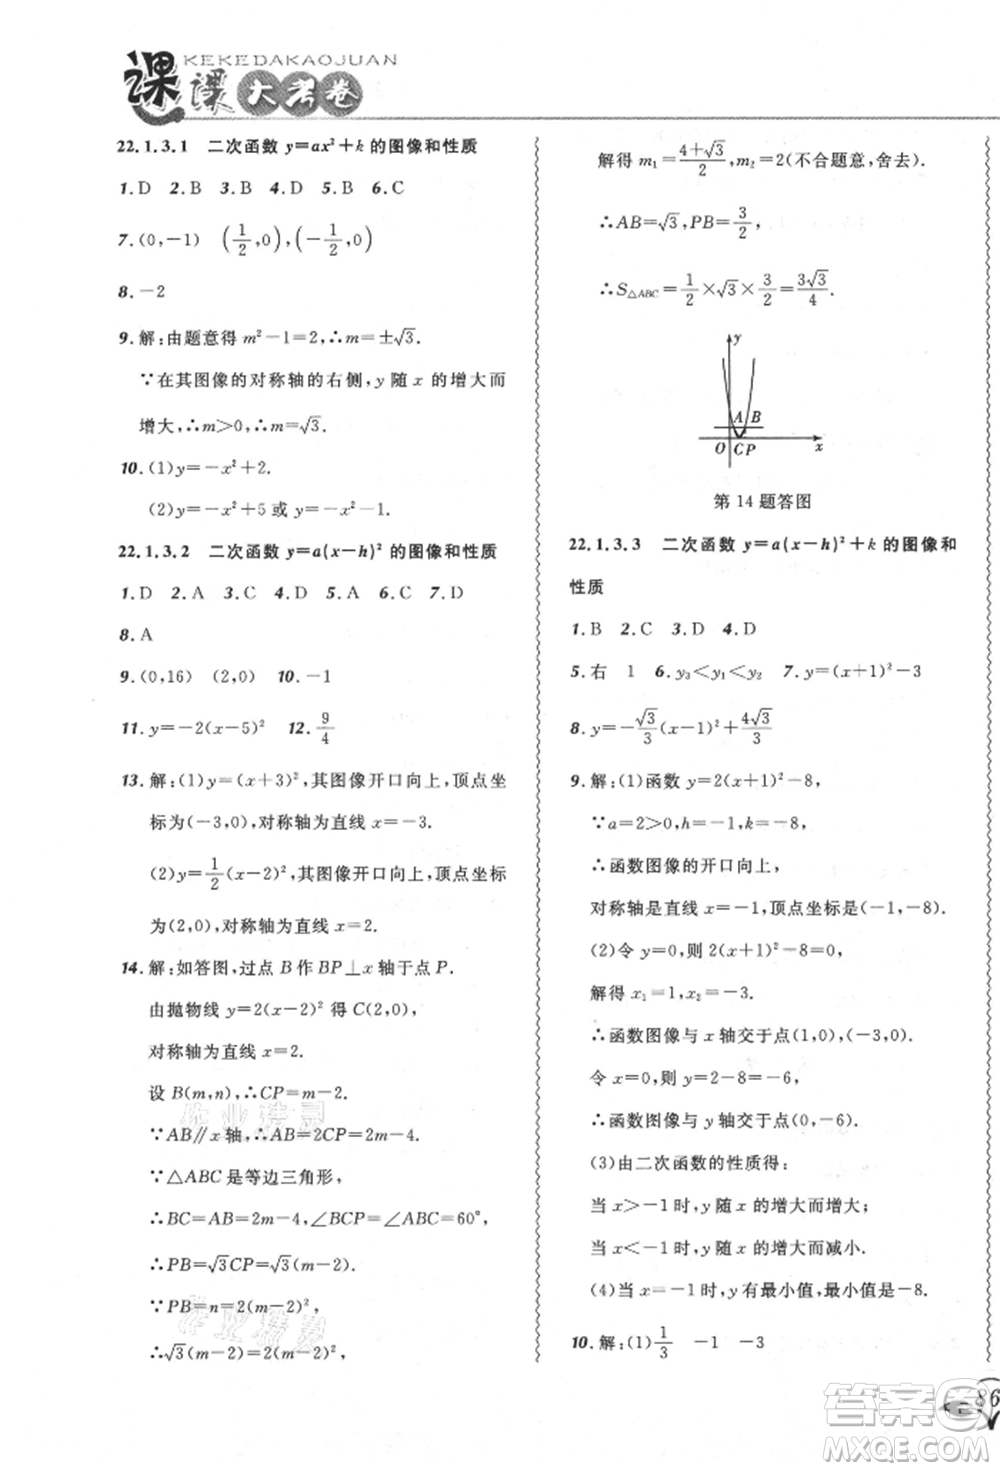 KEKEDAKAOJUAN
课课大考卷
22.1.3.1 二次函数 y=ax²+k 的图像和性质
1. D 2. B 3. B 4. D 5. B 6. C
7. (0,-1) (1/2,0),(-1/2,0)
8. -2
9. 解:由题意得 m²-1=2,∴m=±√3.
∵在其图像的对称轴的右侧,y 随 x 的增大而
增大,∴m>0,∴m=√3.
10. (1)y=-x²+2.
(2)y=-x²+5 或 y=-x²-1.
22.1.3.2 二次函数 y=a(x-h)² 的图像和性质
1. D 2. A 3. C 4. D 5. C 6. C 7. D
8. A
9. (0,16) (2,0) 10. -1
11. y=-2(x-5)² 12. 9/4
13. 解:(1)y=(x+3)²,其图像开口向上,顶点坐
标为(-3,0),对称轴为直线 x=-3.
(2)y=1/2(x-2)²,其图像开口向上,顶点坐标
为(2,0),对称轴为直线 x=2.
14. 解:如答图,过点 B 作 BP⊥x 轴于点 P.
由抛物线 y=2(x-2)² 得 C(2,0),
对称轴为直线 x=2.
设 B(m,n),∴CP=m-2.
∵AB∥x 轴,∴AB=2CP=2m-4.
∵△ABC 是等边三角形,
∴BC=AB=2m-4,∠BCP=∠ABC=60°,
∴PB=√3CP=√3(m-2).
∵PB=n=2(m-2)²,
∴√3(m-2)=2(m-2)²,
解得 m₁=(4+√3)/2,m₂=2(不合题意,舍去).
∴AB=√3,PB=3/2,
∴S△ABC=1/2×√3×3/2=3√3/4.
y
A B
O C P x
第 14 题答图
22.1.3.3 二次函数 y=a(x-h)²+k 的图像和
性质
1. B 2. C 3. D 4. D
5. 右 1 6. y₃<y₁<y₂ 7. y=(x+1)²-3
8. y=-√3/3(x-1)²+4√3/3
9. 解:(1)函数 y=2(x+1)²-8,
∵a=2>0,h=-1,k=-8,
∴函数图像的开口向上,
对称轴是直线 x=-1,顶点坐标是(-1,-8).
(2)令 y=0,则 2(x+1)²-8=0,
解得 x₁=1,x₂=-3.
∴函数图像与 x 轴交于点(1,0),(-3,0).
令 x=0,则 y=2-8=-6,
∴函数图像与 y 轴交于点(0,-6).
(3)由二次函数的性质得:
当 x>-1 时,y 随 x 的增大而增大;
当 x<-1 时,y 随 x 的增大而减小.
(4)当 x=-1 时,y 有最小值,最小值是-8.
10. 解:(1)1/3 -1 -3
86
答案圈
MXQE.COM